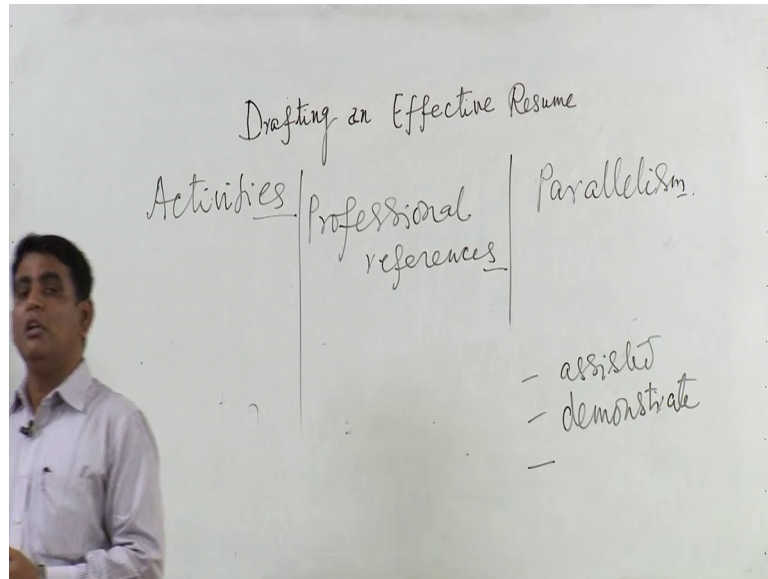 Drafting an Effective Resume
Activities
Professional
references
Parallelism.
- assisted
- demonstrate
-